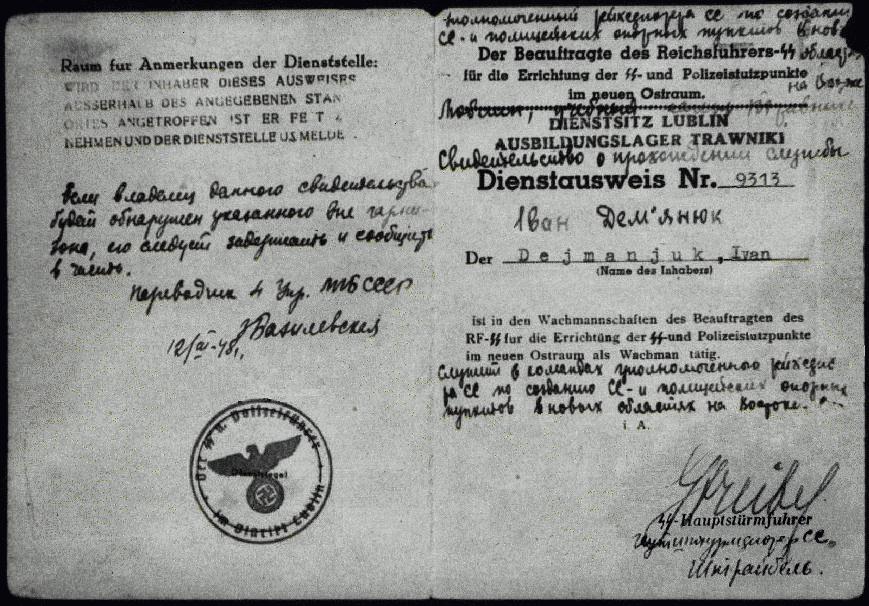 Raum fur Anmerkungen der Dienststelle:
WIRD DER INHABER DIESES AUSWEISES
AUSSERHALB DES ANGEGEBENEN STAN
ORTES ANGETROFFEN IST ER FEST
NEHMEN UND DER DIENSTSTELLE US MELDE
Если владелец данного свидетельства
будет обнаружен указанного вне гарни-
зона, его следует задержать и сообщить
в часть.
Переводчик 4 Упр. МГБ СССР
Базилевская
12/III-48г.
Der SS u. Polizeiführer
Dienstsiegel
im Distrikt Lublin
уполномоченный рейхсфюрера СС по созданию
СС - и полицейских опорных пунктов в новых
Der Beauftragte des Reichsführers-SS
областях
für die Errichtung der SS- und Polizeistützpunkte
на Востоке
im neuen Ostraum.
учебный
DIENSTSITZ LUBLIN
AUSBILDUNGSLAGER TRAWNIKI
Свидетельство о прохождении службы
Dienstausweis Nr. 9313
Iван Дем'янюк
Der Dejmanjuk, Iwan
(Name des Inhabers)
ist in den Wachmannschaften des Beauftragten des
RF-SS fur die Errichtung der SS-und Polizeistutzpunkte
im neuen Ostraum als Wachman tätig.
Служит в командах уполномоченного рейхсфюре
ра СС по созданию СС - и полицейских опорных
пунктов в новых областях на Востоке.
i. A.
Streibel
SS-Hauptsturmführer
гауптштурмфюрер СС
Штрайбель.